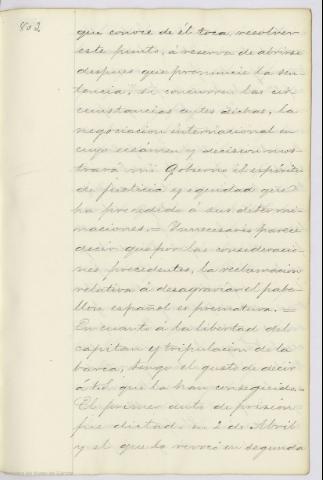 802
que conoce de él toca resolver
este punto, á reserva de abrirse
despues que pronuncie la sen
tencia, si concurren las cir
cunstancias antes dichas, la
negociacion internacional en
cuyo exámen y decision mos
trará mi Gobierno el espíritu
de justicia y equidad que
ha precedido á sus determi
naciones. = Innecesario parece
decir que por las consideracio
nes precedentes, la reclamacion
relativa á desagraviar el pabe
llon español es prematura. =
En cuanto á la libertad del
capitan y tripulacion de la
barca, tengo el gusto de decir
á Ud. que la han conseguido. =
El primer auto de prision
fué dictado en 2 de Abril
y el que lo revocó en segunda